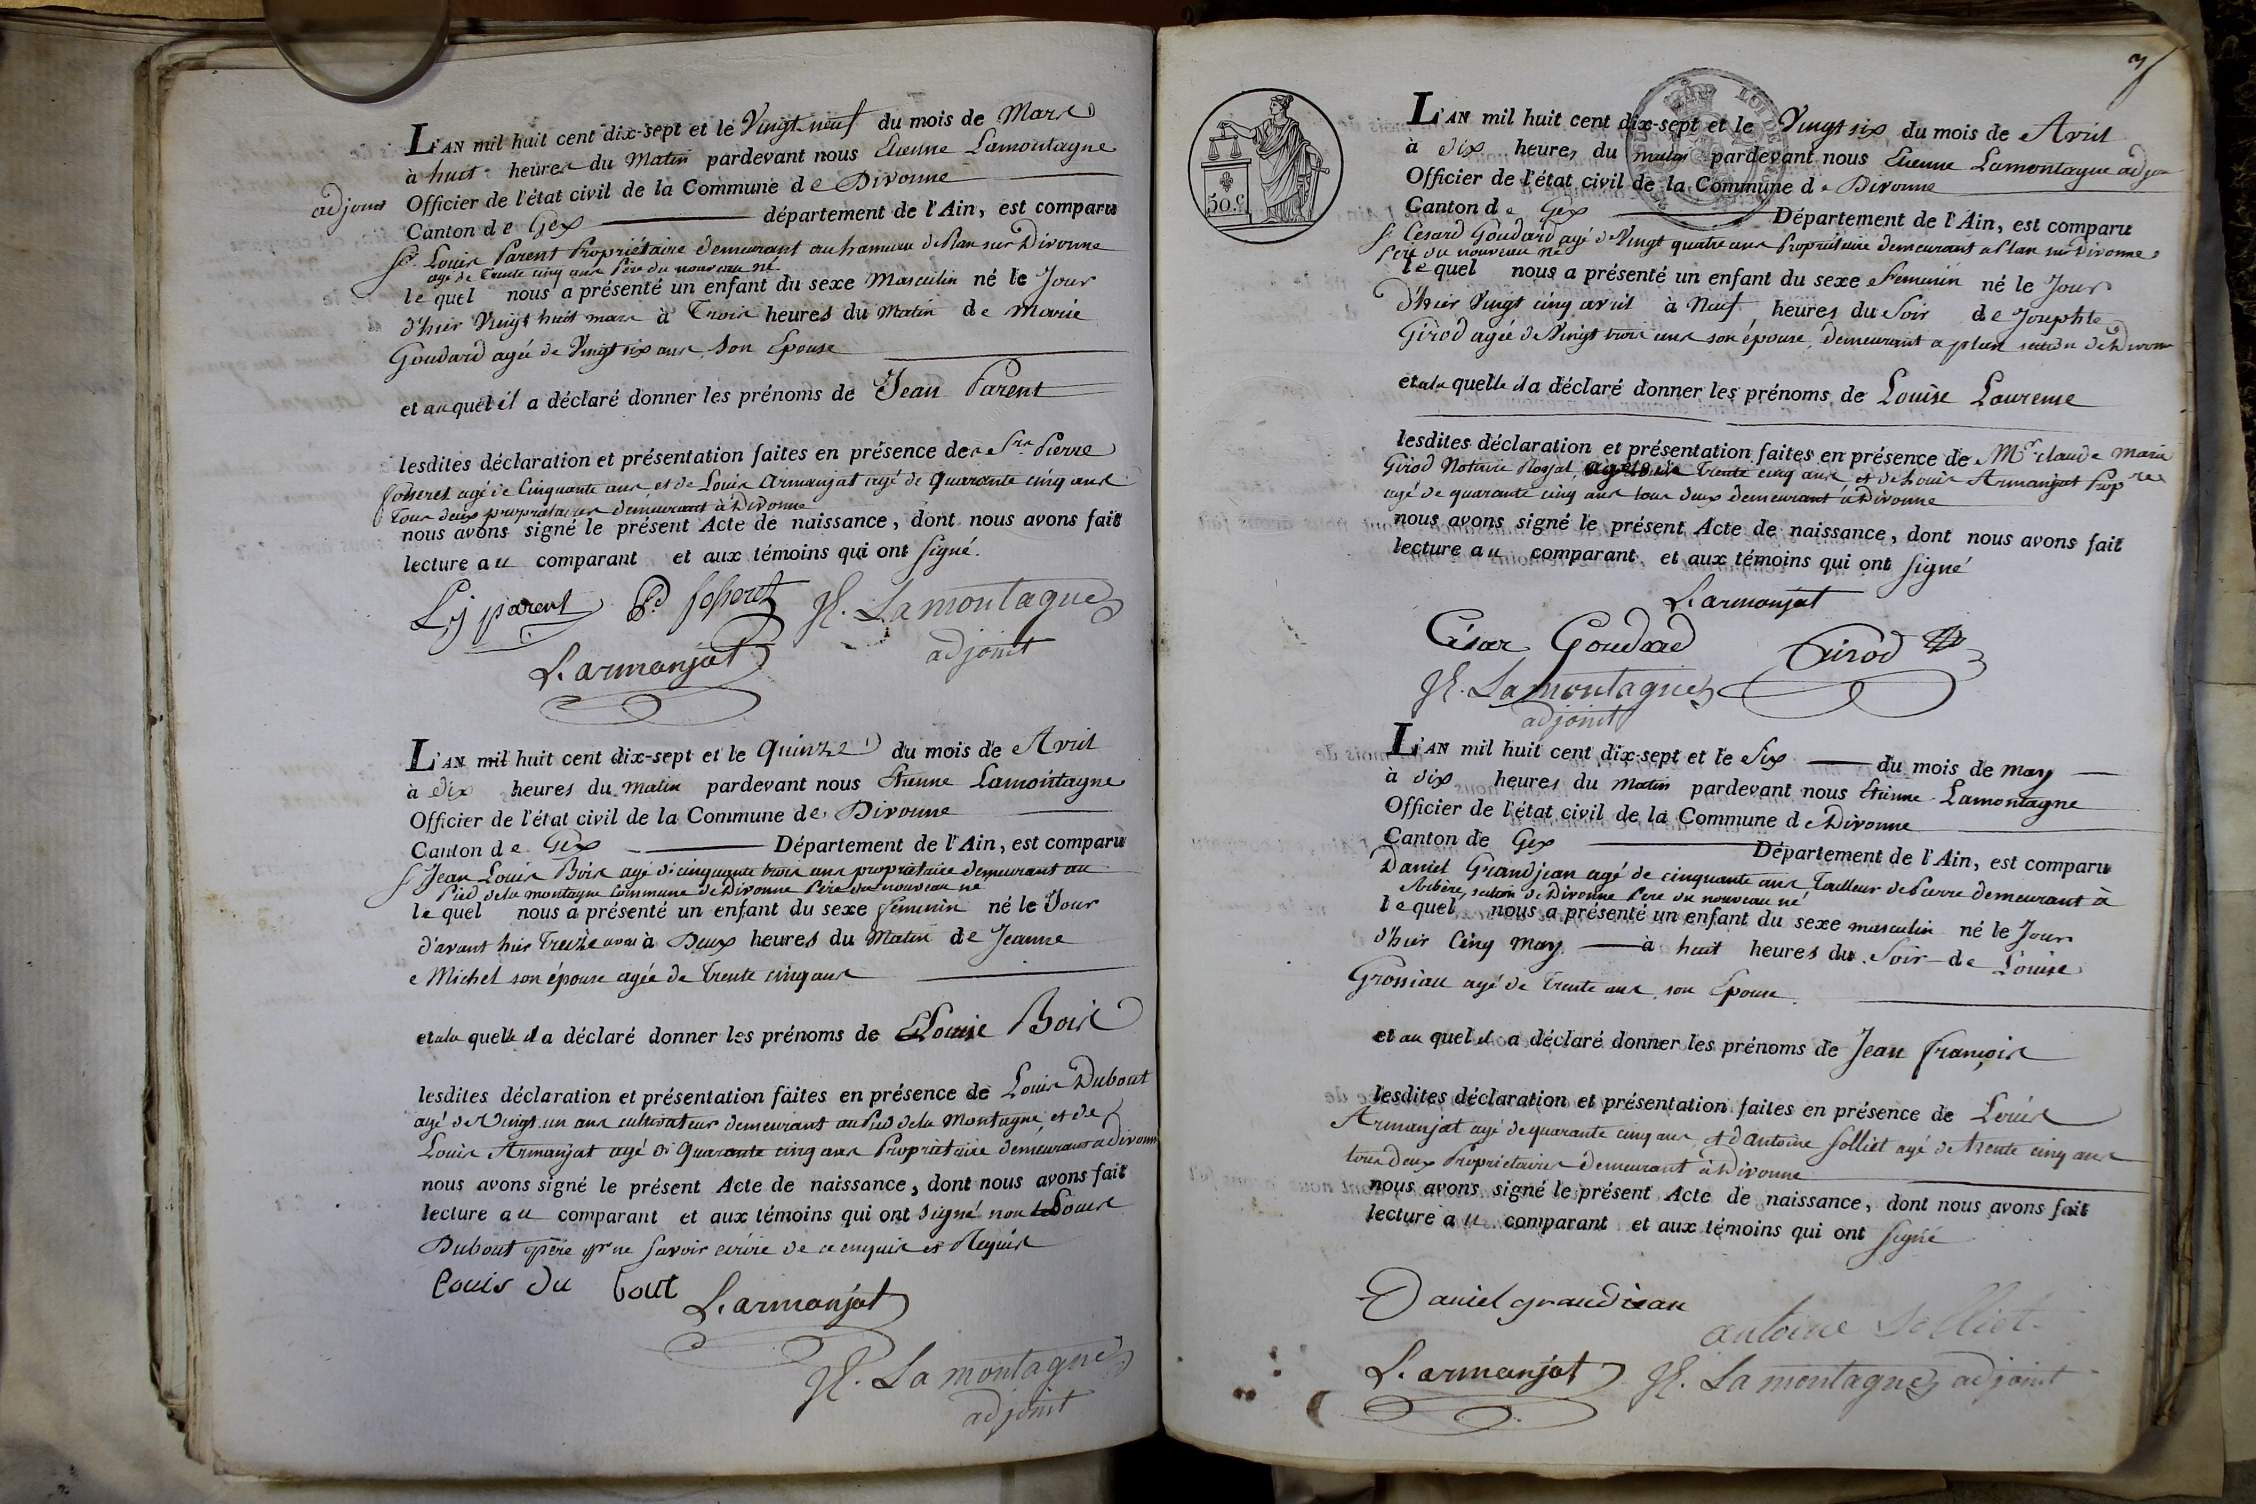 L'AN mil huit cent dix-sept et le Vingt neuf du mois de Mars
à huit heures du Matin pardevant nous Etienne Lamontagne
adjoint Officier de l'état civil de la Commune de Divonne
Canton de Gex département de l'Ain, est comparu
Sr. Louis Parent Propriétaire demeurant au hameau de Plan sur Divonne
agé de Trente cinq ans Père du nouveau né
lequel nous a présenté un enfant du sexe Masculin né le Jour
d'hier Vingt huit mars à Trois heures du Matin de Marie
Goudard agée de Vingt six ans, Son Epouse
et auquel il a déclaré donner les prénoms de Jean Parent
lesdites déclaration et présentation faites en présence de Srs Pierre
fosseret agé de Cinquante ans et de Louis Armanjat agé de Quarante cinq ans
Tous deux propriétaires demeurant à Divonne
nous avons signé le présent Acte de naissance, dont nous avons fait
lecture au comparant et aux témoins qui ont signé.
L,s parent Pd fosseret Je. Lamontagne
L. armanjat adjoint
L'AN mil huit cent dix-sept et le Quinze du mois de Avril
à Dix heures du Matin pardevant nous Etienne Lamontagne
Officier de l'état civil de la Commune de Divonne
Canton de Gex Département de l'Ain, est comparu
Sr Jean Louis Bois agé de cinquante trois ans propriétaire demeurant au
Pied de la montagne Commune de Divonne Père du nouveau né
lequel nous a présenté un enfant du sexe feminin né le Jour
d'avant hier Treize avril à Deux heures du Matin de Jeanne
Michel son épouse agée de Trente cinq ans
et a la quelle il a déclaré donner les prénoms de Louise Bois
lesdites déclaration et présentation faites en présence de Louis Dubout
agé de Vingt un ans cultivateur demeurant au Pied de la Montagne, et de
Louis Armanjat agé de Quarante cinq ans Propriétaire demeurant a Divonne
nous avons signé le présent Acte de naissance, dont nous avons fait
lecture au comparant et aux témoins qui ont signé non Louis
Dubout père pr ne savoir ecrire de ce enquis et Requis
Louis du bout L. armanjat
Je. Lamontagne
adjoint
3
50.c
L'AN mil huit cent dix-sept et le Vingt six du mois de Avril
à dix heures du matin pardevant nous Etienne Lamontagne adjoint
Officier de l'état civil de la Commune de Divonne
Canton de Gex Département de l'Ain, est comparu
Sr Cesard Goudard agé de Vingt quatre ans Propriétaire demeurant a Plan sur Divonne
Père du nouveau né
lequel nous a présenté un enfant du sexe Feminin né le Jour
d'hier Vingt cinq avril à Neuf heures du Soir de Josephte
Girod agée de Vingt trois ans son épouse, demeurant a plan section de Divonne
et a la quelle il a déclaré donner les prénoms de Louise Laurense
lesdites déclaration et présentation faites en présence de Mr Claude Marie
Girod Notaire Royal, agé de Trente cinq ans, et de Louis Armanjat Propre
agé de quarante cinq ans tous deux demeurant à Divonne
nous avons signé le présent Acte de naissance, dont nous avons fait
lecture au comparant et aux témoins qui ont signé
L. armanjat
César Goudard Girod
Je. Lamontagne
adjoint
L'AN mil huit cent dix-sept et le Six du mois de may
à dix heures du Matin pardevant nous Etienne Lamontagne
Officier de l'état civil de la Commune de Divonne
Canton de Gex Département de l'Ain, est comparu
Daniel Grandjean agé de cinquante ans, Tailleur de Pierre demeurant à
Arbère, section de Divonne Père du nouveau né
lequel nous a présenté un enfant du sexe masculin né le Jour
d'hier Cinq may à huit heures du Soir de Louise
Grosniau agé de Trente ans, son Epouse
et au quel il a déclaré donner les prénoms de Jean françois
lesdites déclaration et présentation faites en présence de Louis
Armanjat agé de quarante cinq ans, et d'antoine Solliet agé de trente cinq ans
tous deux Proprietaires demeurant à Divonne
nous avons signé le présent Acte de naissance, dont nous avons fait
lecture au comparant et aux témoins qui ont signé
Daniel grandjean
antoine Solliet
L. armanjat Je. Lamontagne adjoint